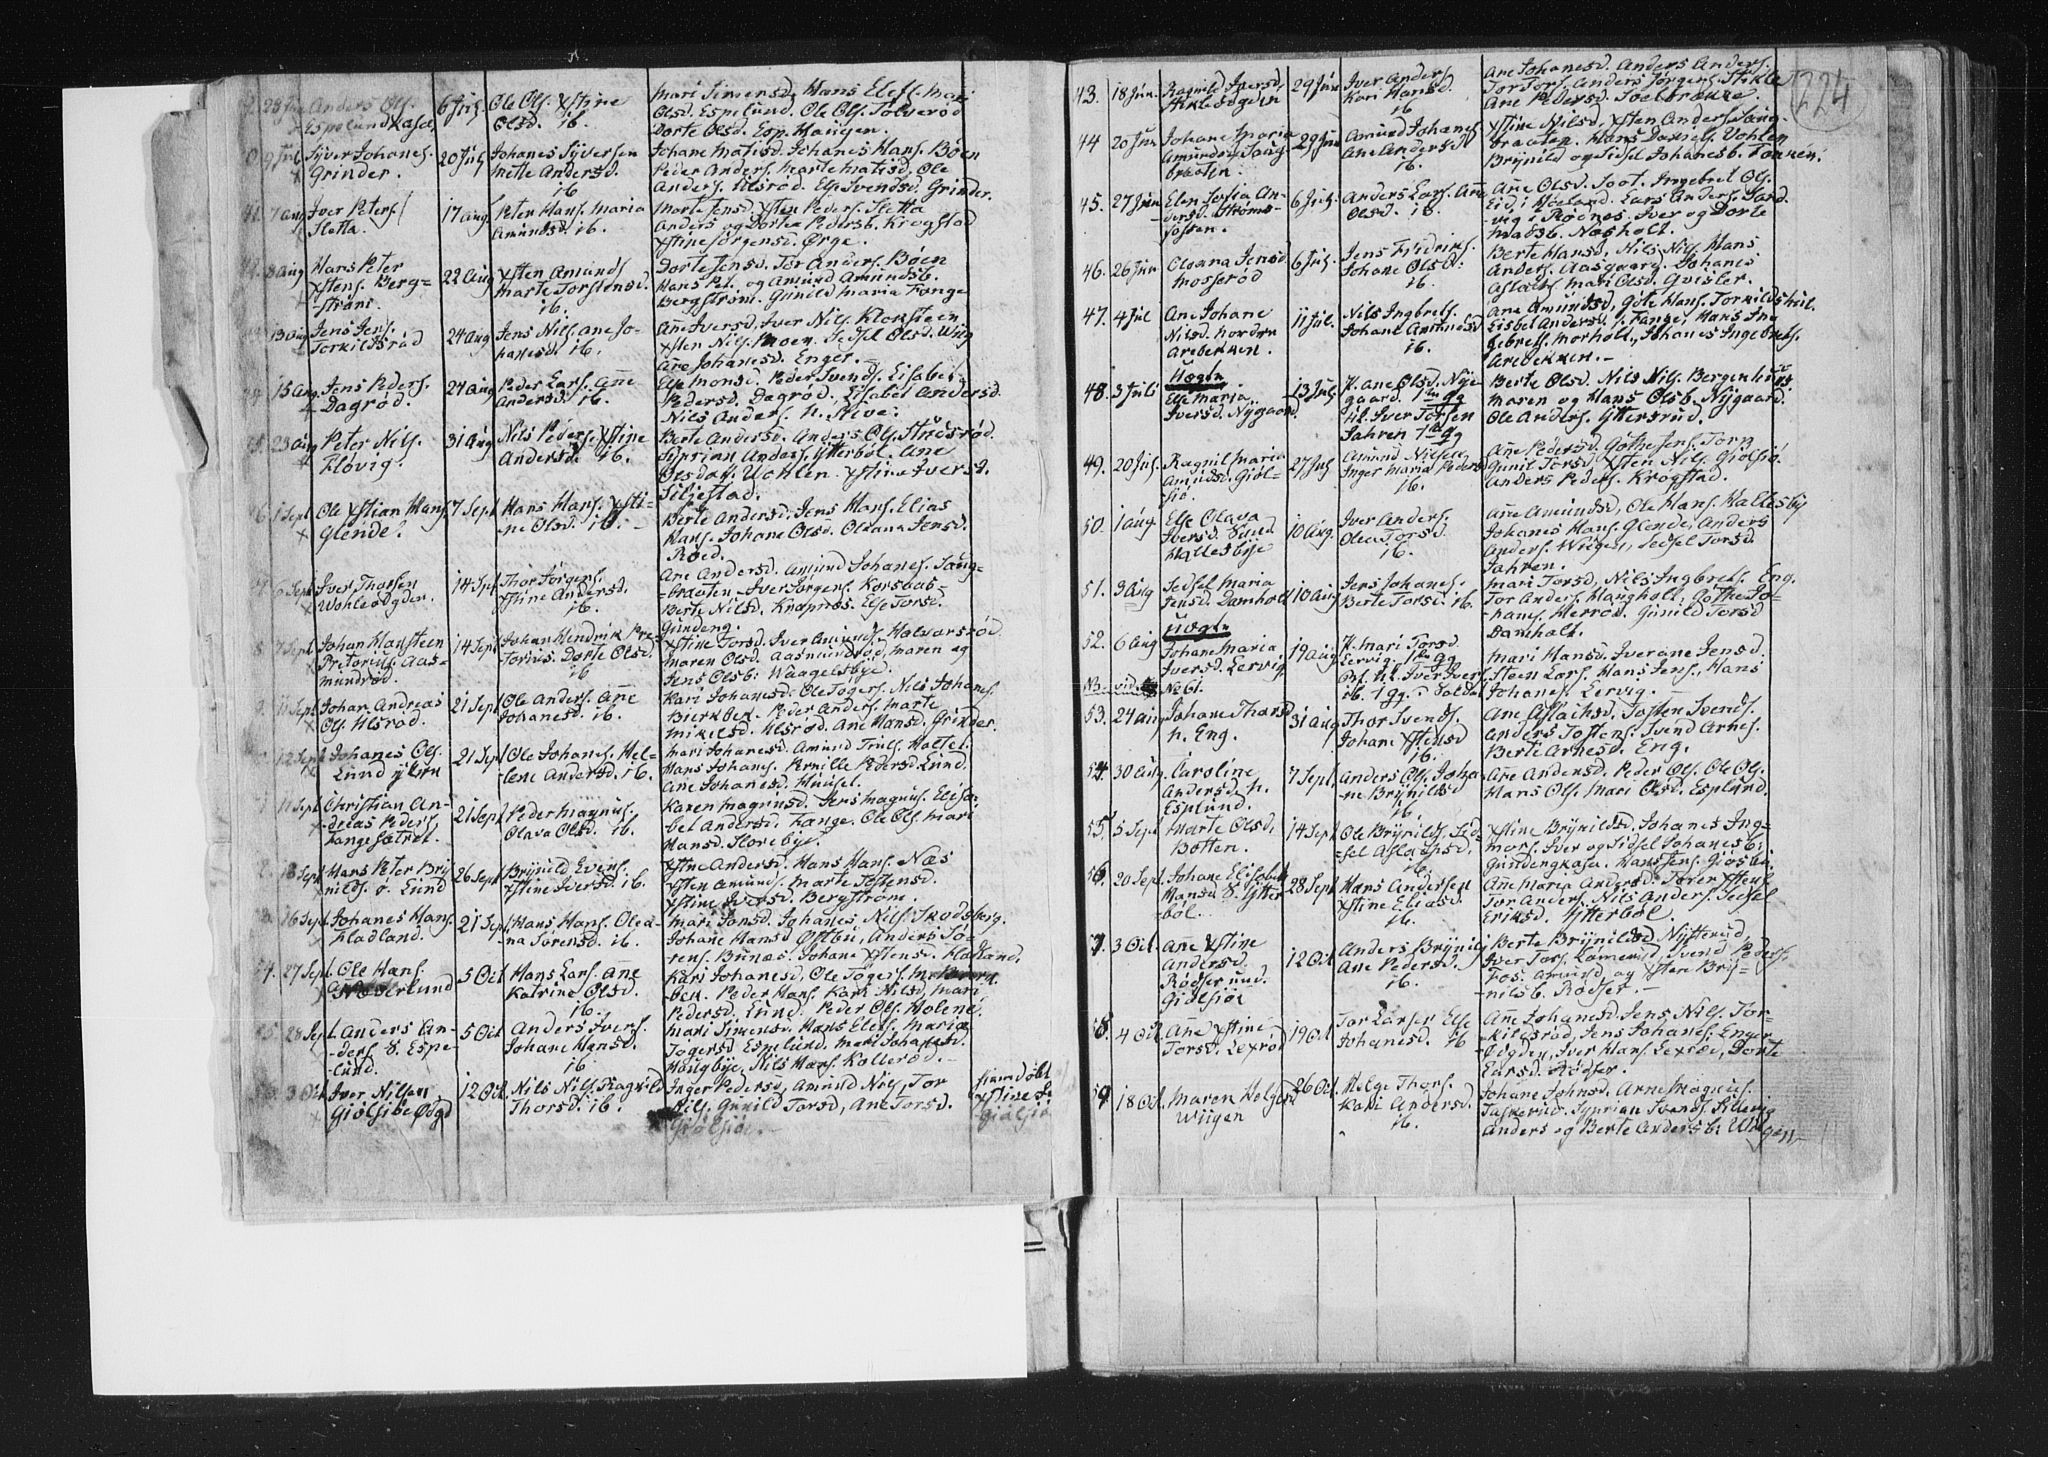 28 Jun Anders Ols.
Espelundkasa
6 Julj
Ole Ols. Xstine
Olsd. ib.
Mari Simensd, Hans Elefs. Mari
Olsd. Espelund. Ole Ols. Tolverød
Dorte Olsd. Esp. Haugen.
9 Jul Syver Johanes.
Grinder.
20 Julj
Johanes Syversen
Mette Andersd.
ib
Johane Matisd. Johanes Hans. Bøen
Peder Anders. Marte Matisd, Ole
Anders. Ulsrød. Else Svendsd. Grinder.
41. 7 aug Iver Peters
Sletta.
17 aug
Peter Hans. Maria
Amundsd. ib.
Marte Jensd. Xsten Peders. Sletta
Anders og Dortea Pedersb. Krogstad
Xstine Jørgensd. Ørge.
42. 8 aug Hans Peter
Xstens. Berg=
-strøm.
22 Aug
Xsten Amunds
Marte Torstensd.
ib.
Dorte Jensd. Tor Anders. Bøen
Hans Pet. og Amund Amundsb.
Bergstrøm. Gunild Maria Fange
13 aug Jens Jens.
Torkilsrød
24 aug
Jens Nils. ane Jo-
hanesd. ib.
Ane Iversd, Iver Nils. Kloksteen
Xsten Nils. Moen. Sedsel Olsd. Wiig
Ane Johanesd. Enger.-
44. 15 aug. Jens Peders.
Dagrød.
24 aug
Peder Lars. Ane
Andersd. ib.
Else Monsd. Peder Svends. Lisabet
Pedersd. Dagrød. Lisabet Andersd
Nils Anders. n. Skive.
45. 23 aug Peter Nils.
Fløvig.
31 aug
Nils Peders. Xstine
Andersd. ib.
Berte Andersd. Anders Ols. Stuesrød.
Siprian Anders. Ytterbøl. Ane
Olsdat. Wohlen. Xstine Iversd.
Siljestad.
46 1 Sept Ole Xstian Hans
Glende.
7 Sept
Hans Hans. Xsti-
ne Olsd. ib.
Berte Andersd. Jens Hans. Elias
Hans. Johane Olsd. Oleana Jensd.
Røed.
47. 6 Sept Iver Thorsen
Wohleødgden.
14 Sept
Thor Jørgens.
Xstine Andersd.
ib.
Ane Andersd. Amund Johanes. Saug-
-braaten. Iver Jørgens. Korsbas-
Berte Nilsd. Knapnøs. Else Torsd.
Gundeng.
8 7 Sept Johan Hansteen
Pretorius Aas-
mundrød.
14 Sept
Johan Hendrik Pre-
torius. Dorte Olsd.
ib
Xstine Torsd. Iver Amunds. Halvorsrød
Maren Olsd. Aasmundrød, Maren og
Jens Olsb: Waagelsbye.
9. 11 Sept Johan Andreas
Ols. Ulsrød.
21 Sept
Ole Anders. Ane
Johanesd. ib.
Kari Johanesd. Ole Togers. Nils Johanes.
Bierkbek. Peder Anders. Marte
Mikelsd. Ulsrød. Ane Hansd. Grinder.
12 Sept Johanes Ols.
Lund ytten
21 Sept
Ole Johanes. Hel-
lene Andersd. ib.
Mari Johanesd. Amund Truls. Holtet.
Hans Johanes. Pernille Pedersd. Lund.
Ane Johanesd. Huusel.
11 Sept. Christian An-
-dreas Peders
Fangesætret.
21 Sept
Peder Magnus.
Olava Olsd. ib.
Karen Magnusd. Jens Magnus. Elisa-
bet Andersd. Fange. Ole Ols. Mari
Hansd. Storebye.
2. 18 Sept Hans Peter Bry
nilds. ø. Lund
26 Sept
Brynild Evens.
Xstine Iversd. ib.
Xstine Andersd. Hans Hans. Næs
Xsten Amunds. Marte Tostensd.
Xstine Iversd. Bergstrøm.
53. 16 Sept. Johanes Hans.
Fladland.
21 Sept
Hans Hans. Olea-
na Sørensd. ib.
Mari Jansd. Johanes Nils. Skodsberg.
Johane Hansd Østbu, Anders Sø-
rens. Bunæs. Johane Xstensd. Fladland.
54. 27 Sept. Ole Hans.
Næderlund
5 Oct
Hans Lars. Ane
Katrine Olsd.
ib.
Kari Johanesd. Ole Togers.
bek. Peder Hans. Kari Nilsd, Mari
Pedersd. Lund. Peder Ols. Holene.
55. 28 Sept. Anders An-
-ders. S. Espe-
-lund.
5 Oct
Anders Ivers.
Johane Hansd.
ib
Mari Simensd. Hans Elefs. Maria
Togersd Espelund. Mari Johanesd.
Haugbye, Nils Hans. Kollerød.
56. 3 Oct Iver Nilsen
Giølsiøe Ødgd
12 Oct
Nils Nils. Ragnild
Thorsd. ib.
Inger Pedersd, Amund Nils, Tor
Nils. Gunild Torsd, Ane Torsd.
Giølsiøe.
hiemdøbt
Xstine
Giølsiø
224
43. 18 Jun. Ragnild Iversd,
Stikleødgden
29 Jun
Iver Anders
Kari Hansd.
ib
Ane Johanesd. Anders Anders.
Tor Tors. Anders Jørgens. Stikle
Ane Pedersd. Soelbrække.
44 20 Jun Johane Maria
Amundsd. Saug-
braaten.
29 Jun
Amund Johanes
Ane Andersd
ib.
Xstine Nilsd, Xsten Anders. Saug-
braaten. Hans Daniels. Vohlen
Brynild og Sidsel Johanesb. Tønnen.
45. 27 Jun Elen Sofia An-
dersd. Strøms-
fossen.
6 Julj.
Anders Lars. Ane
Olsd. ib.
Ane Olsd. Soot. Ingebret Ols.
Eid i Høeland. Lars Anders. Sand
-vig i Rødnes. Iver og Dorte
Madsb. Næsholt.
46. 26 Jun Oleana Jensd
Mosserød
6 Julj.
Jens Fredriks.
Johane Olsd.
ib.
Berte Hansd, Nils Nils. Hans
Anders. Aasgaarg. Johanes
Aslaks. Mari Olsd. Qvisler.
47. 4 Jul Ane Johane
Nilsd. nordre
Arebekken.
11 Jul.
Nils Ingbrets.
Johane Amundsd
ib.
Ane Amundsd, Gote Hans. Torkildshul.
Lisbet Andersd. s. Fange, Hans Ing
gebrets. Morholt, Johanes Ingebrets.
Arebekken.-
48. 3 Juli Uægte
Else Maria
Iversd. Nygaard.
13 Julj
P. ane Olsd. Nye
gaard. 1ste Gg
Ul. Iver Torsen
Jahren 1ste Gg
Berte Olsd. Nils Nils. Bergenhuus
Maren og Hans Olsb. Nygaard.
Ole Anders. Yttersrud.
49. 20 Jul. Ragnil Maria
Amundsd. Giøl-
siø.
27 Julj
Amund Nielsen
Inger Maria Pedersd
ib.
Ane Pedersd. Gothe Jens. Torp
Gunil Torsd. Xsten Nils. Giølsiø
Anders Peders. Krogstad.
50. 1 aug. Else Olava
Iversd. Sund
Hallesbye
10 Aug.
Iver Anders.
Olea Torsd.
ib.
Ane Amundsd, Ole Hans. Hallesby
Johanes Hans. Glende, Anders
Anders. Wiigen, Sedsel Torsd.
Jahren.
51. 3 Aug Sedsel Maria
Jensd. Damholt
10 Aug
Jens Johanes.
Berte Torsd. ib.
Mari Torsd, Nils Ingbrets. Eng.
Tor Anders. Haugholt, Gothe Jo-
hans. Herrød. Gunild Torsd
Damholt.
52. 6 Aug Uægte
Johane Maria
Iversd. Lervig
19 aug
P. Mari Torsd.
Lervig. 1ste Gg
Brf. Ul. Iver Ivers.
ib. 1 gg. Soldat
Mari Hansd. Iver ane Jensd.
Steen Lars. Hans Jens, Hans
Johanes. Lervig.-
NB. vid. No 61.
53. 24 aug Johane Thorsd
n. Eng.
31 Aug
Thor Svends.
Johane Xstensd
ib.
Ane Aslaksd. Tosten Svends.
Anders Tostens. Svend Arnes.
Berte Arnesd. Eng.
54. 30 aug Caroline
Andersd. n.
Esplund.
7 Sept.
Anders Ols. Joha-
ne Brynildsd
ib.
Ane Andersd. Peder Ols. Ole Ols.
Hans Ols. Mari Olsd. Esplund.
55. 5 Sept Marte Olsd.
Botten.
14 Sept
Ole Brynilds, Sid-
-sel Aslaksd.
ib
Xstine Brynildsd. Johanes Ing=
mars. Iver og Sidsel Johanesb:
Gundengkasa. Hans Jens. Giøsbu
56. 20 Sept. Johane Elisabeth
Hansd. S. Ytter
bøl.
28 Sept
Hans Andersen
Xstine Eliasd.
ib.
Ane Maria Andersd. Torer Xstens.
Tor Anders. Nils Anders. Sedsel
Eriksd. Ytterbøl.
57. 3 Oct. Ane Xstine
Andersd.
Rødser und.
Giølsiøe
12 Oct
Anders Brynils
Ane Pedersd.
ib.
Berte Brynildsd Nytterud,
Iver Tors. Lømerud, Svend Peders.
Fos. Amund og Xsten Bry=
-nilsb. Rødser.-
58. 4 Oct Ane Xstine
Torsd. Lexrød
19 Oct
Tor Larsen Else
Johanesd. ib
Ane Johanesd. Jens Nils. Tor-
kildsrød, Jens Johanes. Enger
ødgden, Iver Hans. Lexsøe, Dorte
Larsd. Rødser.
59. 18 Oct. Maren Helgesd
Wiigen
26 Oct.
Helge Thors.
Kari Andersd.
ib.
Johane Johnsd. Arne Magnus.
Taskerud. Syprian Svends. Sillevig
Anders og Berte Andersb: Wiigen.